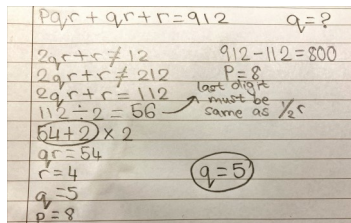 pqr + qr + r = 912 q = ?
2qr + r ≠ 12
2qr + r ≠ 212
2qr + r = 112
112 ÷ 2 = 56
54 + 2) × 2
qr = 54
r = 4
q = 5
p = 8
912 - 112 = 800
P = 8
last digit
must be
same as 1/2 r
q = 5